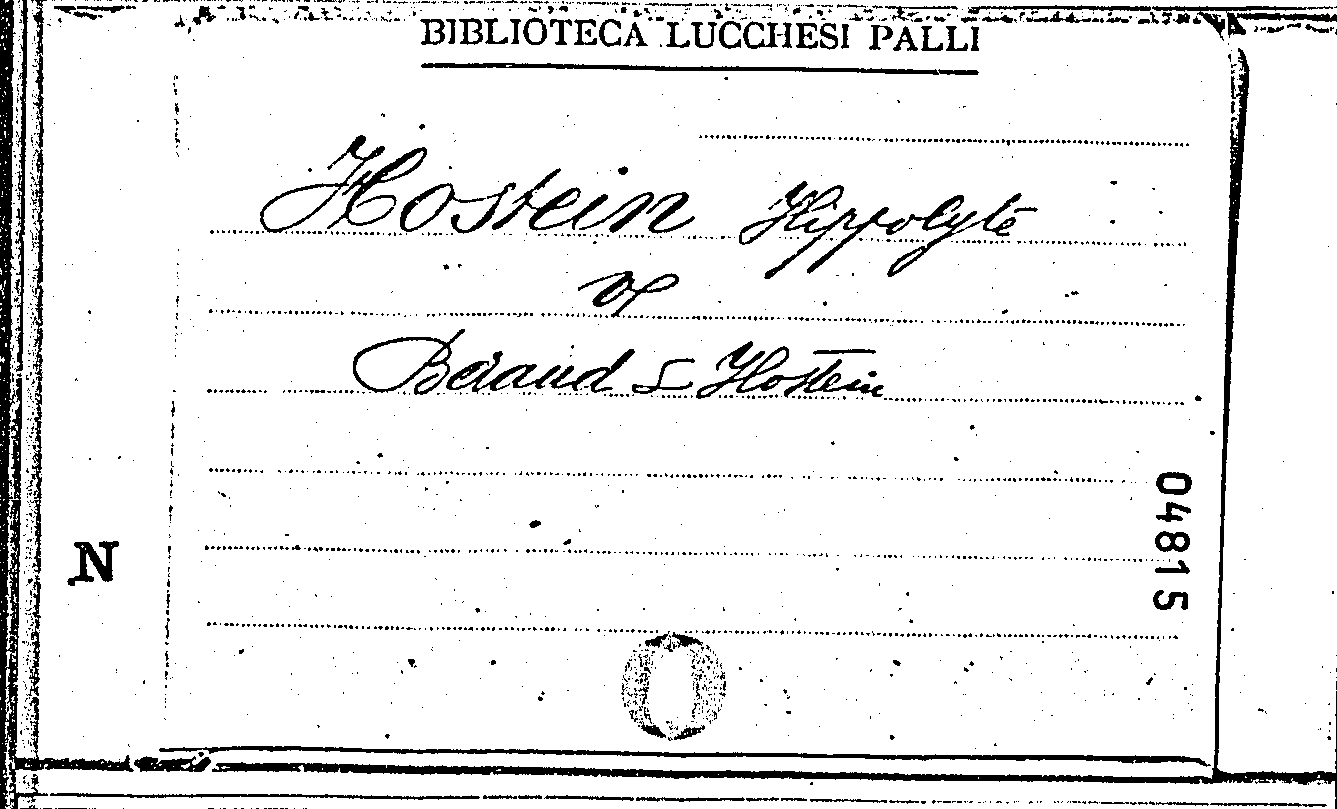 BIBLIOTECA LUCCHESI PALLI
Hostein Hippolyte
Beraud & Hostein
N
04815